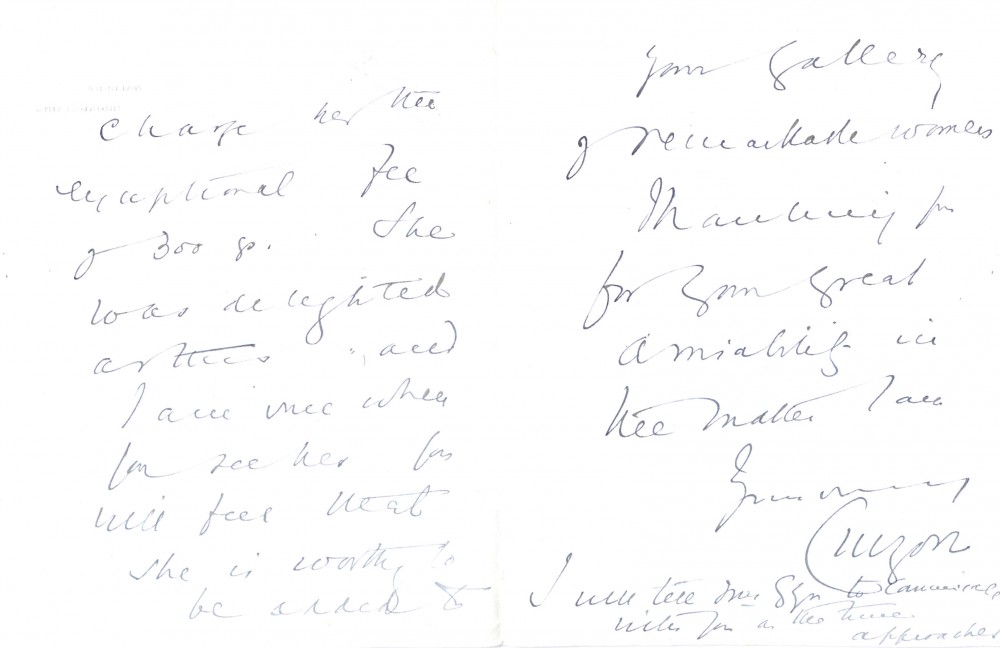 charge her the
exceptional fee
of 300 gs. She
was delighted
at this and
I am sure when
you see her you
will feel that
she is worthy to
be added to
your gallery
of remarkable women
Thanking you
for your great
amiability in
the matter I am
Yours
Curzon
I will tell Mrs Glyn to communicate
with you as the time
approaches